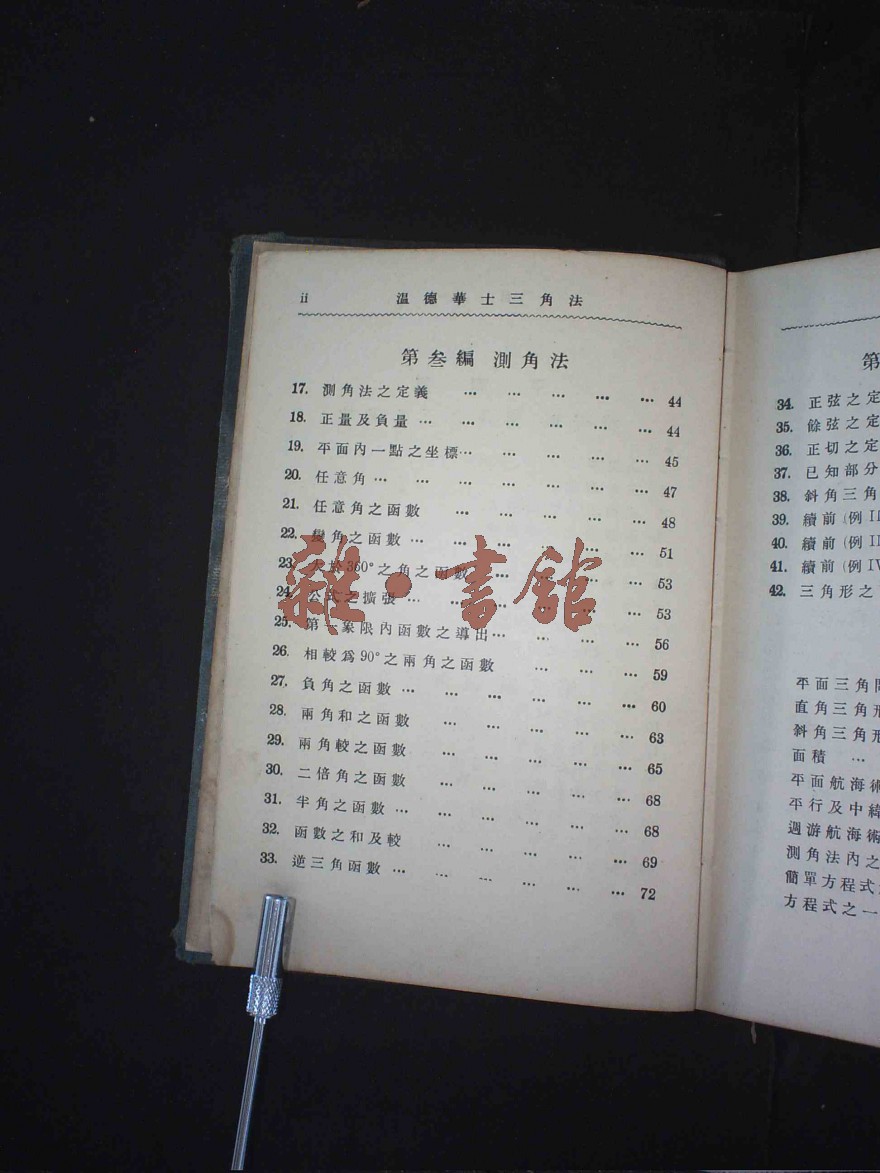 ii 溫德華士三角法
第叁編 測角法
17. 測角法之定義 ... ... ... ... ... 44
18. 正量及負量 ... ... ... ... ... ... 44
19. 平面內一點之坐標... ... ... ... ... 45
20. 任意角... ... ... ... ... ... ... 47
21. 任意角之函數 ... ... ... ... ... 48
22. 變角之函數 ... ... ... ... ... ... 51
23. 大於360°之角之函數 ... ... ... ... 53
24. 公式之擴張 ... ... ... ... ... ... 53
25. 第一象限內函數之導出... ... ... ... 56
26. 相較爲90°之兩角之函數 ... ... ... 59
27. 負角之函數 ... ... ... ... ... ... 60
28. 兩角和之函數 ... ... ... ... ... 63
29. 兩角較之函數 ... ... ... ... ... 65
30. 二倍角之函數 ... ... ... ... ... 68
31. 半角之函數 ... ... ... ... ... ... 68
32. 函數之和及較 ... ... ... ... ... 69
33. 逆三角函數 ... ... ... ... ... ... 72
雜·書館
第
34. 正弦之定
35. 餘弦之定
36. 正切之定
37. 已知部分
38. 斜角三角
39. 續前 (例 II
40. 續前 (例 II
41. 續前 (例 IV
42. 三角形之
平面三角
直角三角形
斜角三角形
面積 ...
平面航海術
平行及中緯
週游航海術
測角法內之
簡單方程式
方程式之一